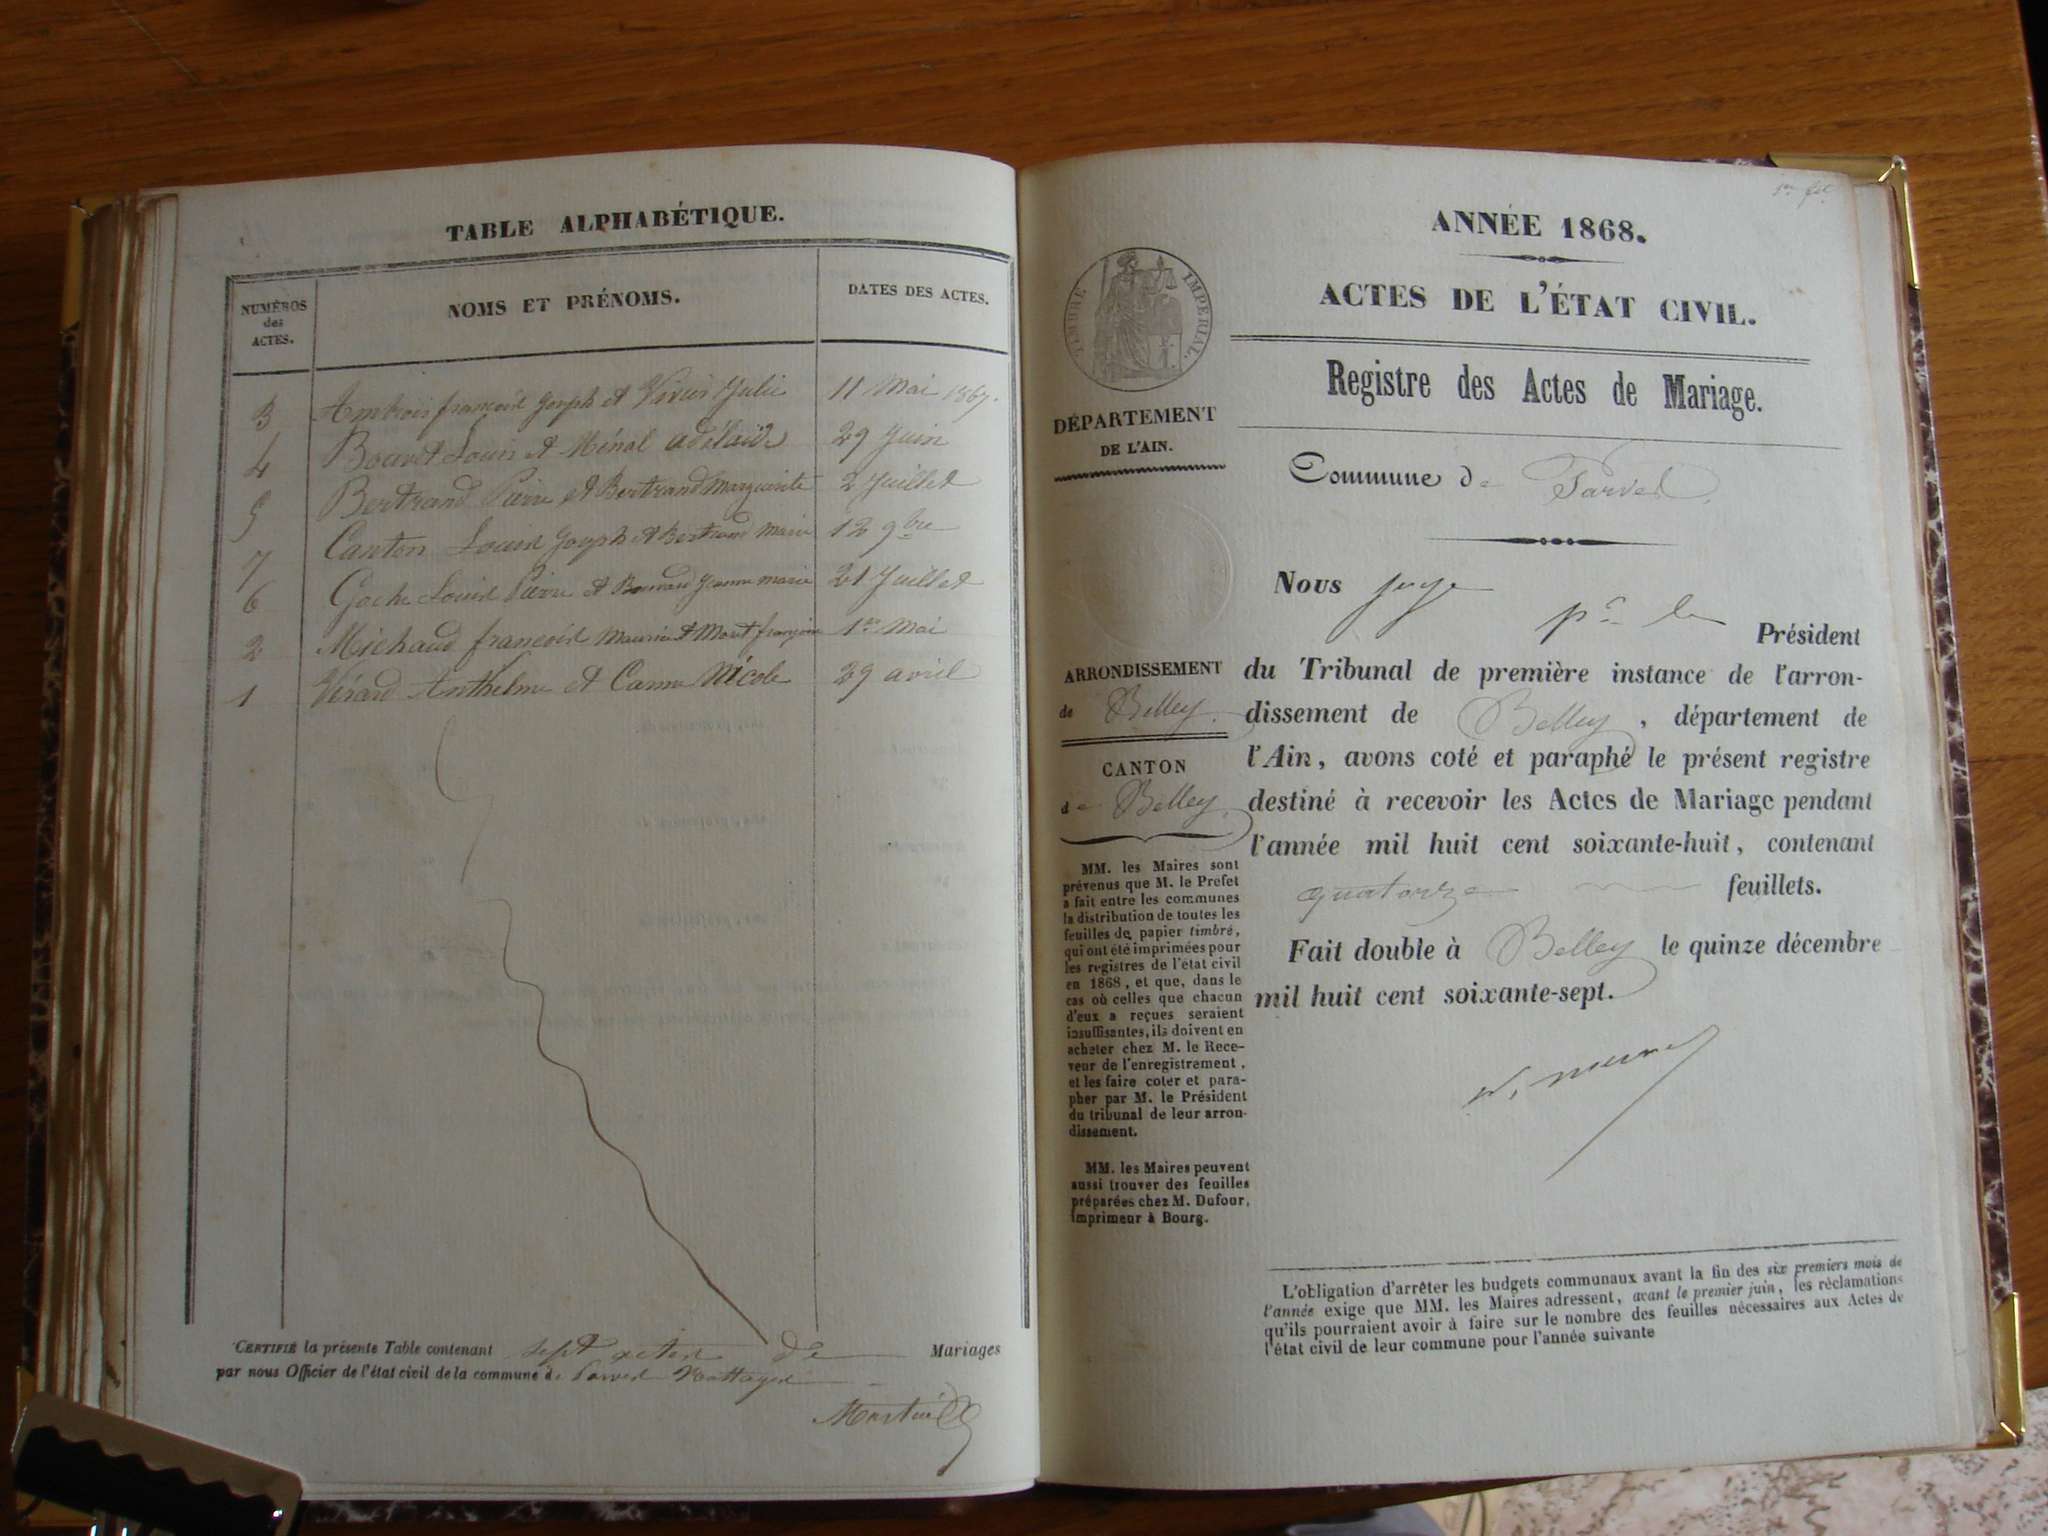 TABLE ALPHABÉTIQUE.
NUMÉROS des ACTES.
NOMS ET PRÉNOMS.
DATES DES ACTES.
3 françois Joseph et Vivier Julie 11 Mai 1867.
4 Bouvet Louis et Ménal adélaïde 29 Juin
5 Bertrand Pierre et Bertrand Marguerite 2 Juillet
7 Canton Louis Joseph et Bertrand Marie 12 9bre
6 Goche Louis Pierre et Jeanne marie 21 Juillet
2 Michaud françois Maurice et Mont françoise 1er Mai
1 Vérard Anthelme et Canne Nicole 29 avril
CERTIFIÉ la présente Table contenant sept actes de Mariages
par nous Officier de l'état civil de la commune de Parves Nattages
1er fet
ANNÉE 1868.
ACTES DE L'ÉTAT CIVIL.
TIMBRE IMPÉRIAL.
Registre des Actes de Mariage.
DÉPARTEMENT
DE L'AIN.
Commune de Parves
Nous juge pr. le Président
du Tribunal de première instance de l'arron-
dissement de Belley, département de
l'Ain, avons coté et paraphé le présent registre
destiné à recevoir les Actes de Mariage pendant
l'année mil huit cent soixante-huit, contenant
quatorze feuillets.
Fait double à Belley le quinze décembre
mil huit cent soixante-sept.
ARRONDISSEMENT
de Belley.
CANTON
de Belley.
MM. les Maires sont
prévenus que M. le Préfet
a fait entre les communes
la distribution de toutes les
feuilles de papier timbré,
qui ont été imprimées pour
les registres de l'état civil
en 1868, et que, dans le
cas où celles que chacun
d'eux a reçues seraient
insuffisantes, ils doivent en
acheter chez M. le Rece-
veur de l'enregistrement,
et les faire coter et para-
pher par M. le Président
du tribunal de leur arron-
dissement.
MM. les Maires peuvent
aussi trouver des feuilles
préparées chez M. Dufour,
imprimeur à Bourg.
L'obligation d'arrêter les budgets communaux avant la fin des six premiers mois de
l'année exige que MM. les Maires adressent, avant le premier juin, les réclamations
qu'ils pourraient avoir à faire sur le nombre des feuilles nécessaires aux Actes de
l'état civil de leur commune pour l'année suivante